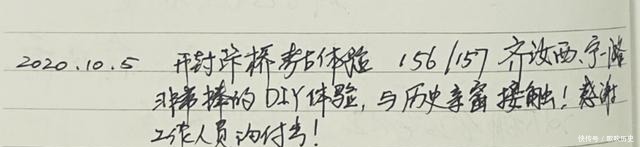 2020.10.5 开封陈桥考古体验 156/157 齐汝西、宁一谐
非常棒的DIY体验，与历史亲密接触！感谢
工作人员的付出！
快传号/宽歌历史